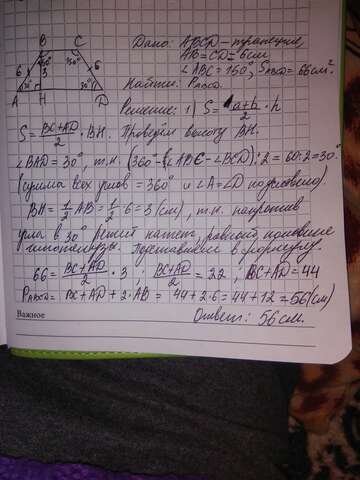 B C
Дано: ABCD - трапеция,
AB = CD = 6 см
6 60° 3 150° 6
∠ABC = 150°, SABCD = 66 см².
30° 30°
A H D
Найти: PABCD.
Решение: 1) S = a+b/2 · h
S = BC+AD/2 · BH. Проведём высоту BH.
∠BAD = 30°, т.к. (360° - ∠ABC - ∠BCD) : 2 = 60 : 2 = 30°
(сумма всех углов = 360° и ∠A = ∠D по условию).
BH = 1/2 AB = 1/2 · 6 = 3 (см), т.к. напротив
угла в 30° лежит катет, равный половине
гипотенузы. Подставляем в формулу.
66 = BC+AD/2 · 3 ; BC+AD/2 = 22 ; BC+AD = 44
PABCD = BC + AD + 2 · AB = 44 + 2 · 6 = 44 + 12 = 56 (см)
Ответ: 56 см.
Важное